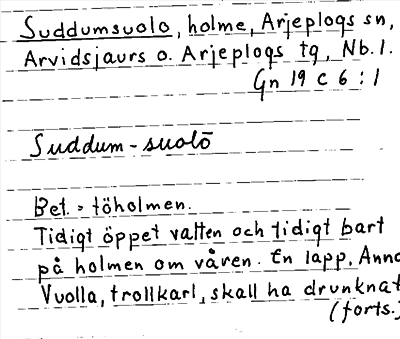 Suddumsuolo, holme, Arjeplogs sn,
Arvidsjaurs o. Arjeplogs tg, Nb.l.
Gn 19 C 6 : 1
Suddum-suolō
Bet. > töholmen.
Tidigt öppet vatten och tidigt bart
på holmen om våren. En lapp, Anno
Vuolla, trollkarl, skall ha drunknat
(forts.)